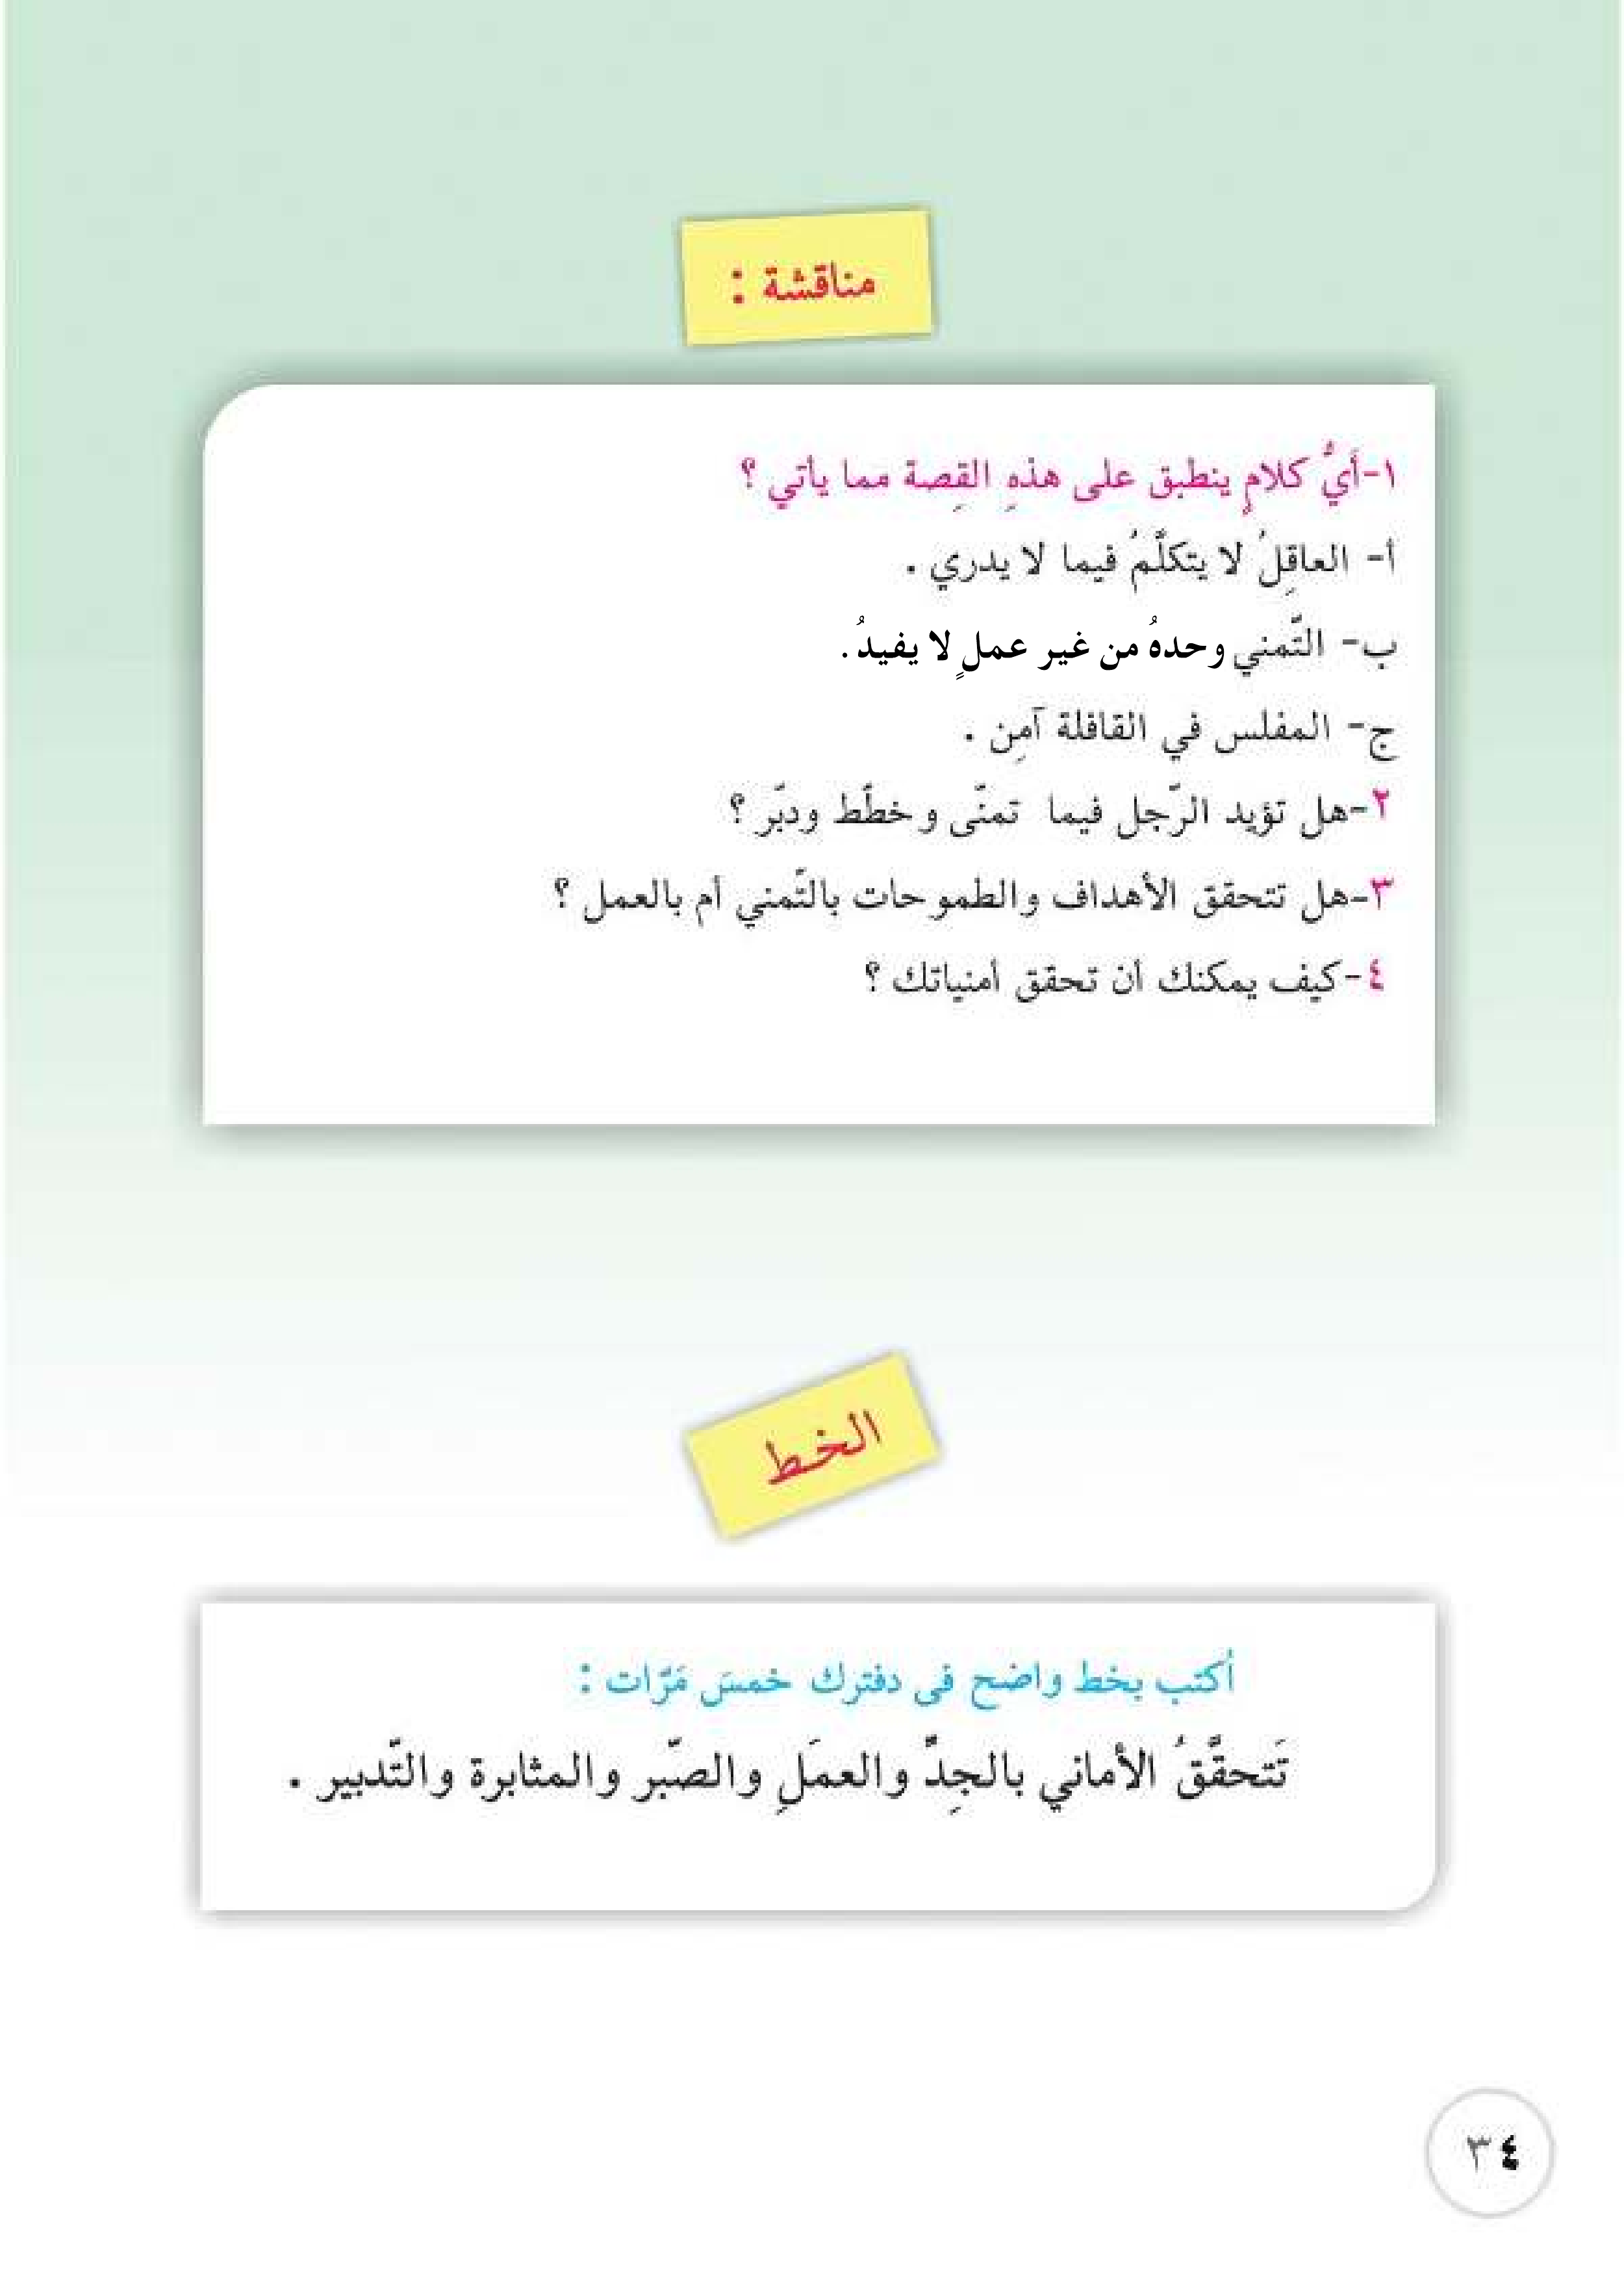 مناقشة :
١-أَيُّ كلامٍ ينطبق على هذهِ القِصة مما يأتي ؟
أ- العاقِلُ لا يتكلَّمُ فيما لا يدري .
ب- التَّمني وحدهُ من غير عملٍ لا يفيدُ .
ج- المفلس في القافلة آمِن .
٢-هل تؤيد الرَّجل فيما تمنّى وخطّط ودبّر ؟
٣-هل تتحقق الأهداف والطموحات بالتَّمني أم بالعمل ؟
٤-كيف يمكنك أن تحقق أمنياتك ؟
الخط
أكتب بخط واضح فى دفترك خمسَ مَرّات :
تَتحقَّقُ الأماني بالجِدِّ والعمَلِ والصَّبر والمثابرة والتَّدبير .
٣٤